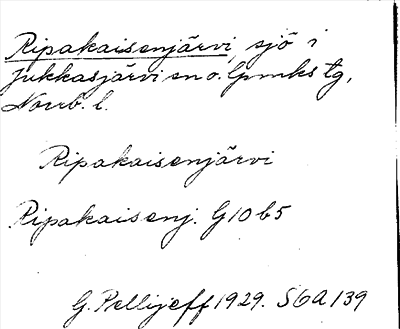 Ripakaisenjärvi, sjö i
Jukkasjärvi sn o. lpmks tg,
Norrb. l.
Ripakaisenjärvi
Ripakaisenj. G10 b5
G. Pellijeff 1929. S6A139